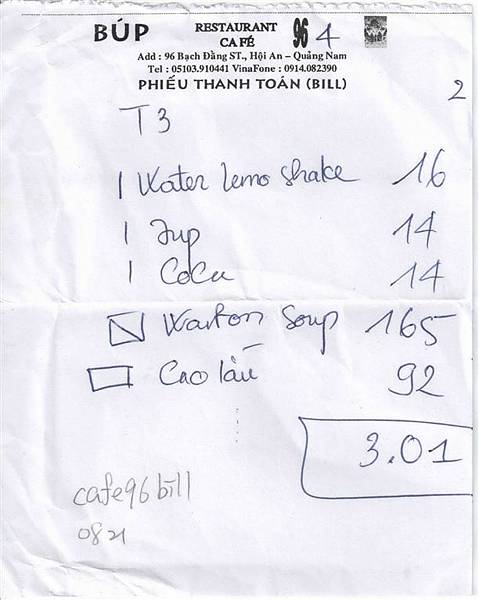 BÚP RESTAURANT CAFÉ 96 4
Add : 96 Bạch Đằng ST., Hội An – Quảng Nam
Tel : 05103.910441 VinaFone : 0914.082390
PHIẾU THANH TOÁN (BILL)
2
T3
1 Water lemo shake 16
1 7up 14
1 CoCa 14
Wanton Soup 165
Cao lầu 92
3.01
cafe96bill
0821